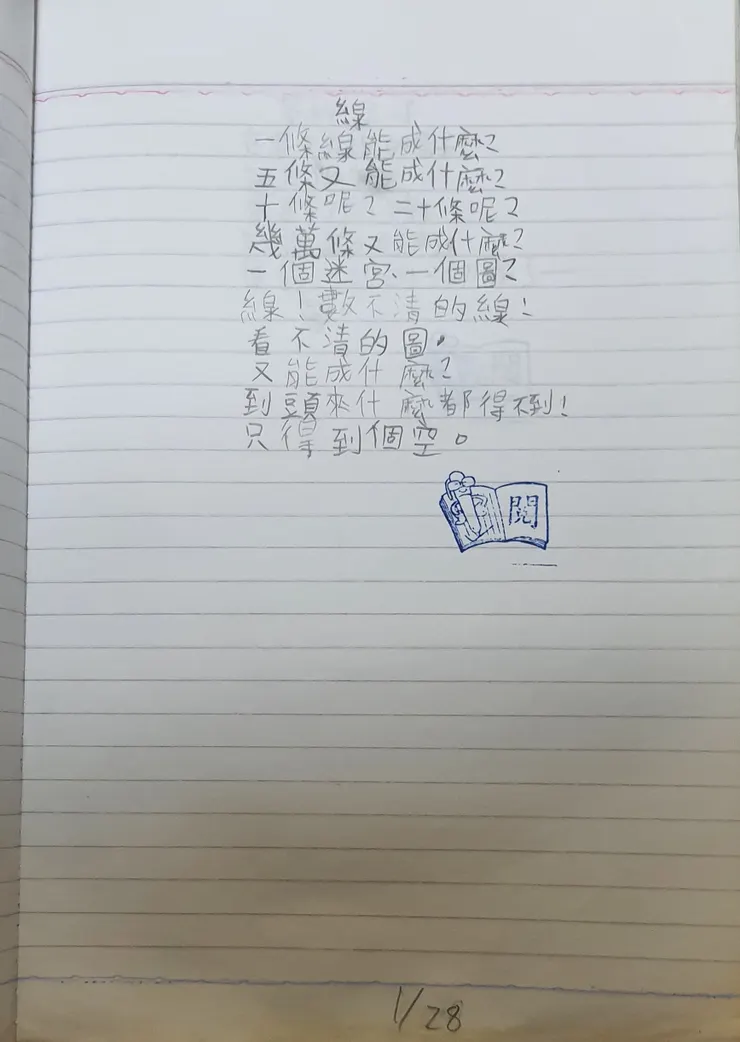 線
一條線能成什麼?
五條又能成什麼?
十條呢?二十條呢?
幾萬條又能成什麼?
一個迷宮、一個圖?
線!數不清的線!
看不清的圖。
又能成什麼?
到頭來什麼都得不到!
只得到個空。
閱
1/28